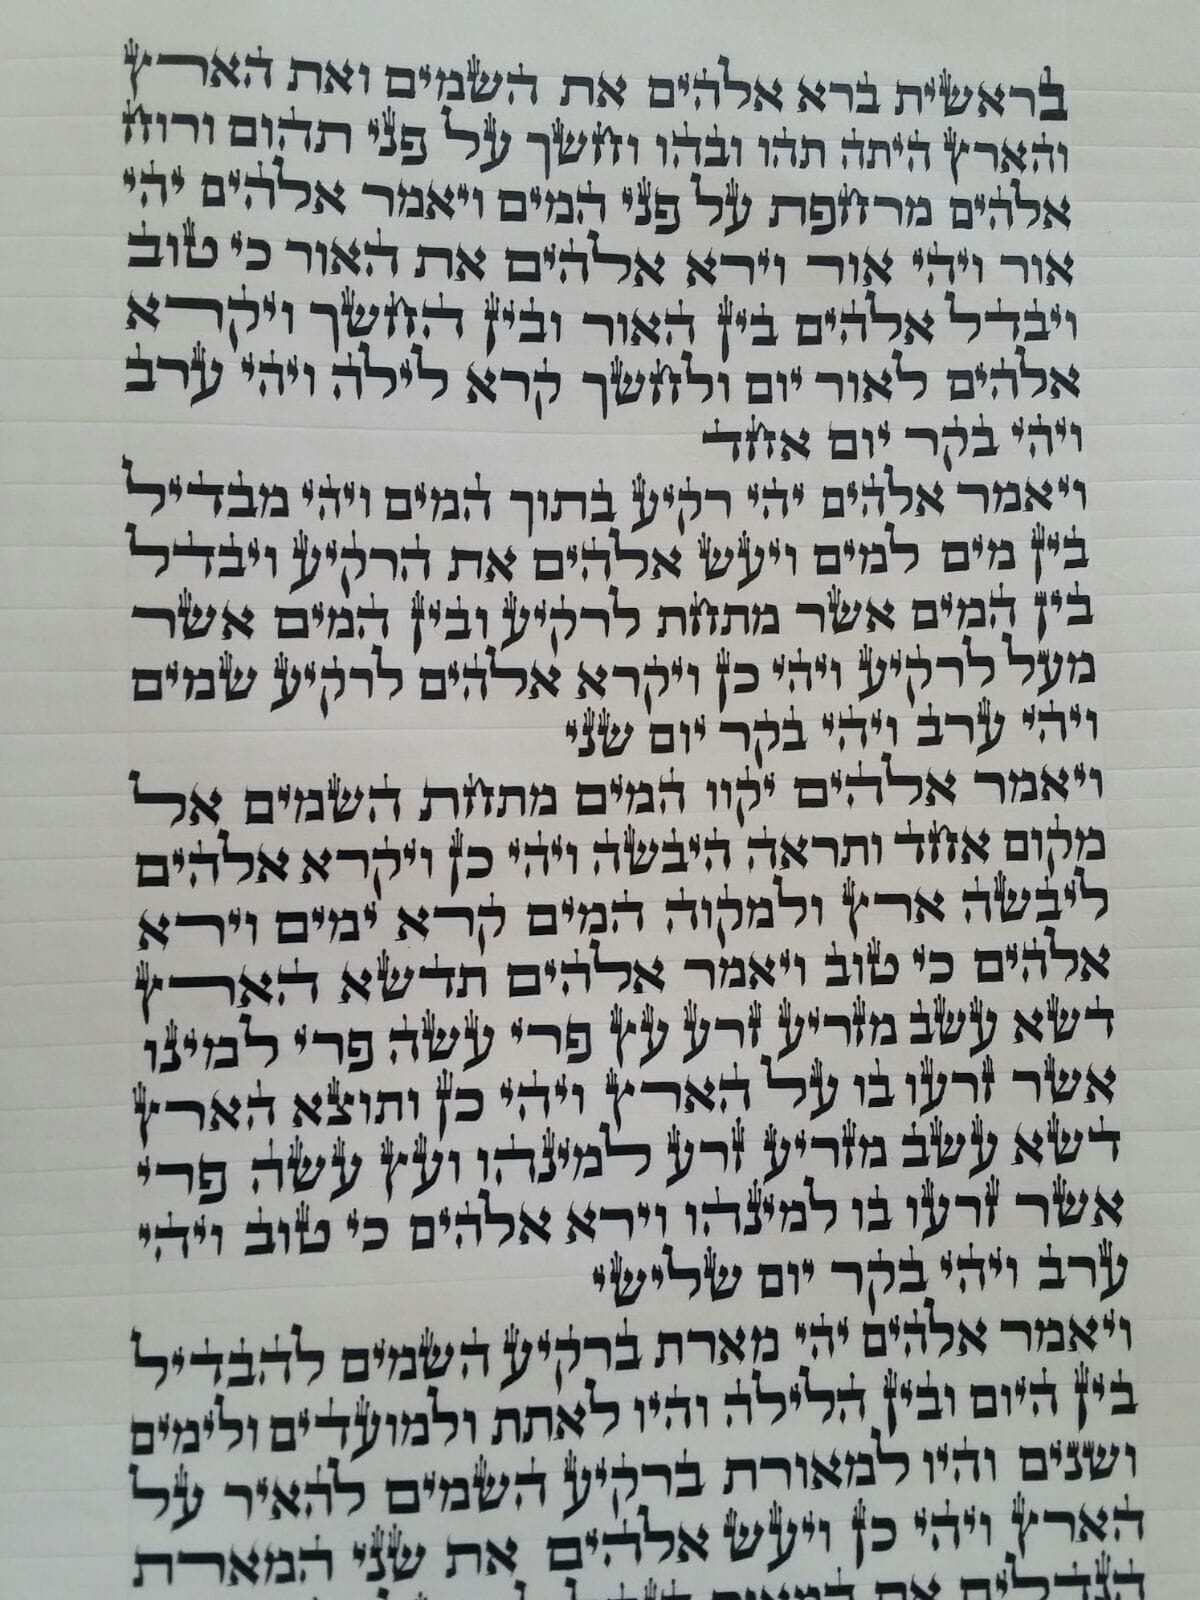 בראשית ברא אלהים את השמים ואת הארץ
והארץ היתה תהו ובהו וחשך על פני תהום ורוח
אלהים מרחפת על פני המים ויאמר אלהים יהי
אור ויהי אור וירא אלהים את האור כי טוב
ויבדל אלהים בין האור ובין החשך ויקרא
אלהים לאור יום ולחשך קרא לילה ויהי ערב
ויהי בקר יום אחד
ויאמר אלהים יהי רקיע בתוך המים ויהי מבדיל
בין מים למים ויעש אלהים את הרקיע ויבדל
בין המים אשר מתחת לרקיע ובין המים אשר
מעל לרקיע ויהי כן ויקרא אלהים לרקיע שמים
ויהי ערב ויהי בקר יום שני
ויאמר אלהים יקוו המים מתחת השמים אל
מקום אחד ותראה היבשה ויהי כן ויקרא אלהים
ליבשה ארץ ולמקוה המים קרא ימים וירא
אלהים כי טוב ויאמר אלהים תדשא הארץ
דשא עשב מזריע זרע עץ פרי עשה פרי למינו
אשר זרעו בו על הארץ ויהי כן ותוצא הארץ
דשא עשב מזריע זרע למינהו ועץ עשה פרי
אשר זרעו בו למינהו וירא אלהים כי טוב ויהי
ערב ויהי בקר יום שלישי
ויאמר אלהים יהי מארת ברקיע השמים להבדיל
בין היום ובין הלילה והיו לאתת ולמועדים ולימים
ושנים והיו למאורת ברקיע השמים להאיר על
הארץ ויהי כן ויעש אלהים את שני המארת
הגדלים את המאור הגדל